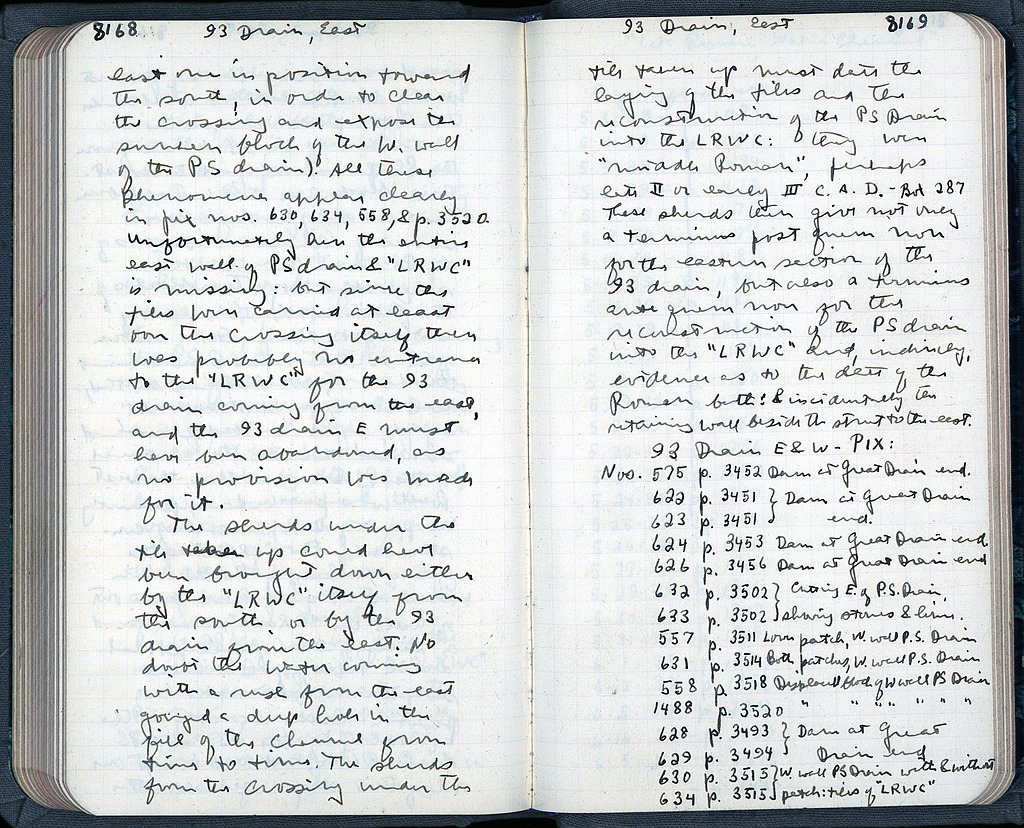 8168 93 Drain, East
last one in position toward
the south, in order to clear
the crossing and expose the
sunken block of the W. wall
of the PS drain). All these
phenomena appear clearly
in pix nos. 630, 634, 558, & p. 3520.
Unfortunately here the entire
east wall of PS drain & "LRWC"
is missing: but since the
tiles were carried at least
over the crossing itself there
was probably no entrance
to the "LRWC" for the 93
drain coming from the east,
and the 93 drain E must
have been abandoned, as
no provision was made
for it.
The sherds under the
tile taken up could have
been brought down either
by the "LRWC" itself from
the south or by the 93
drain from the east. No
doubt the water coming
with a rush from the east
gouged a deep hole in the
fill of the channel from
time to time. The sherds
from the crossing under the
93 Drain, East 8169
tile taken up must date the
laying of the tiles and the
reconstruction of the PS Drain
into the LRWC: they were
"middle Roman", perhaps
late II or early III C. A.D. - Bot 287
These sherds then give not only
a terminus post quem non
for the eastern section of the
93 drain, but also a terminus
ante quem non for the
reconstruction of the PS drain
into the "LRWC" and, indirectly,
evidence as to the date of the
Roman bath: & incidentally the
retaining wall beside the street to the east.
93 Drain E & W - PIX:
Nos. 575 p. 3452 Dam at Great Drain end.
622 p. 3451 } Dam at Great Drain
623 p. 3451 end.
624 p. 3453 Dam at Great Drain end.
626 p. 3456 Dam at Great Drain end
632 p. 3502 } Cutting E. of P.S. Drain,
633 p. 3502 showing stones & lines.
557 p. 3511 Lower patch, W. wall P.S. Drain
631 p. 3514 Both patches, W. wall P.S. Drain
558 p. 3518 Displaced block of W wall PS Drain
1488 p. 3520 " " " " " "
628 p. 3493 } Dam at Great
629 p. 3494 Drain end
630 p. 3515 } W. wall PS Drain with & without
634 p. 3515 patch: tiles of "LRWC"